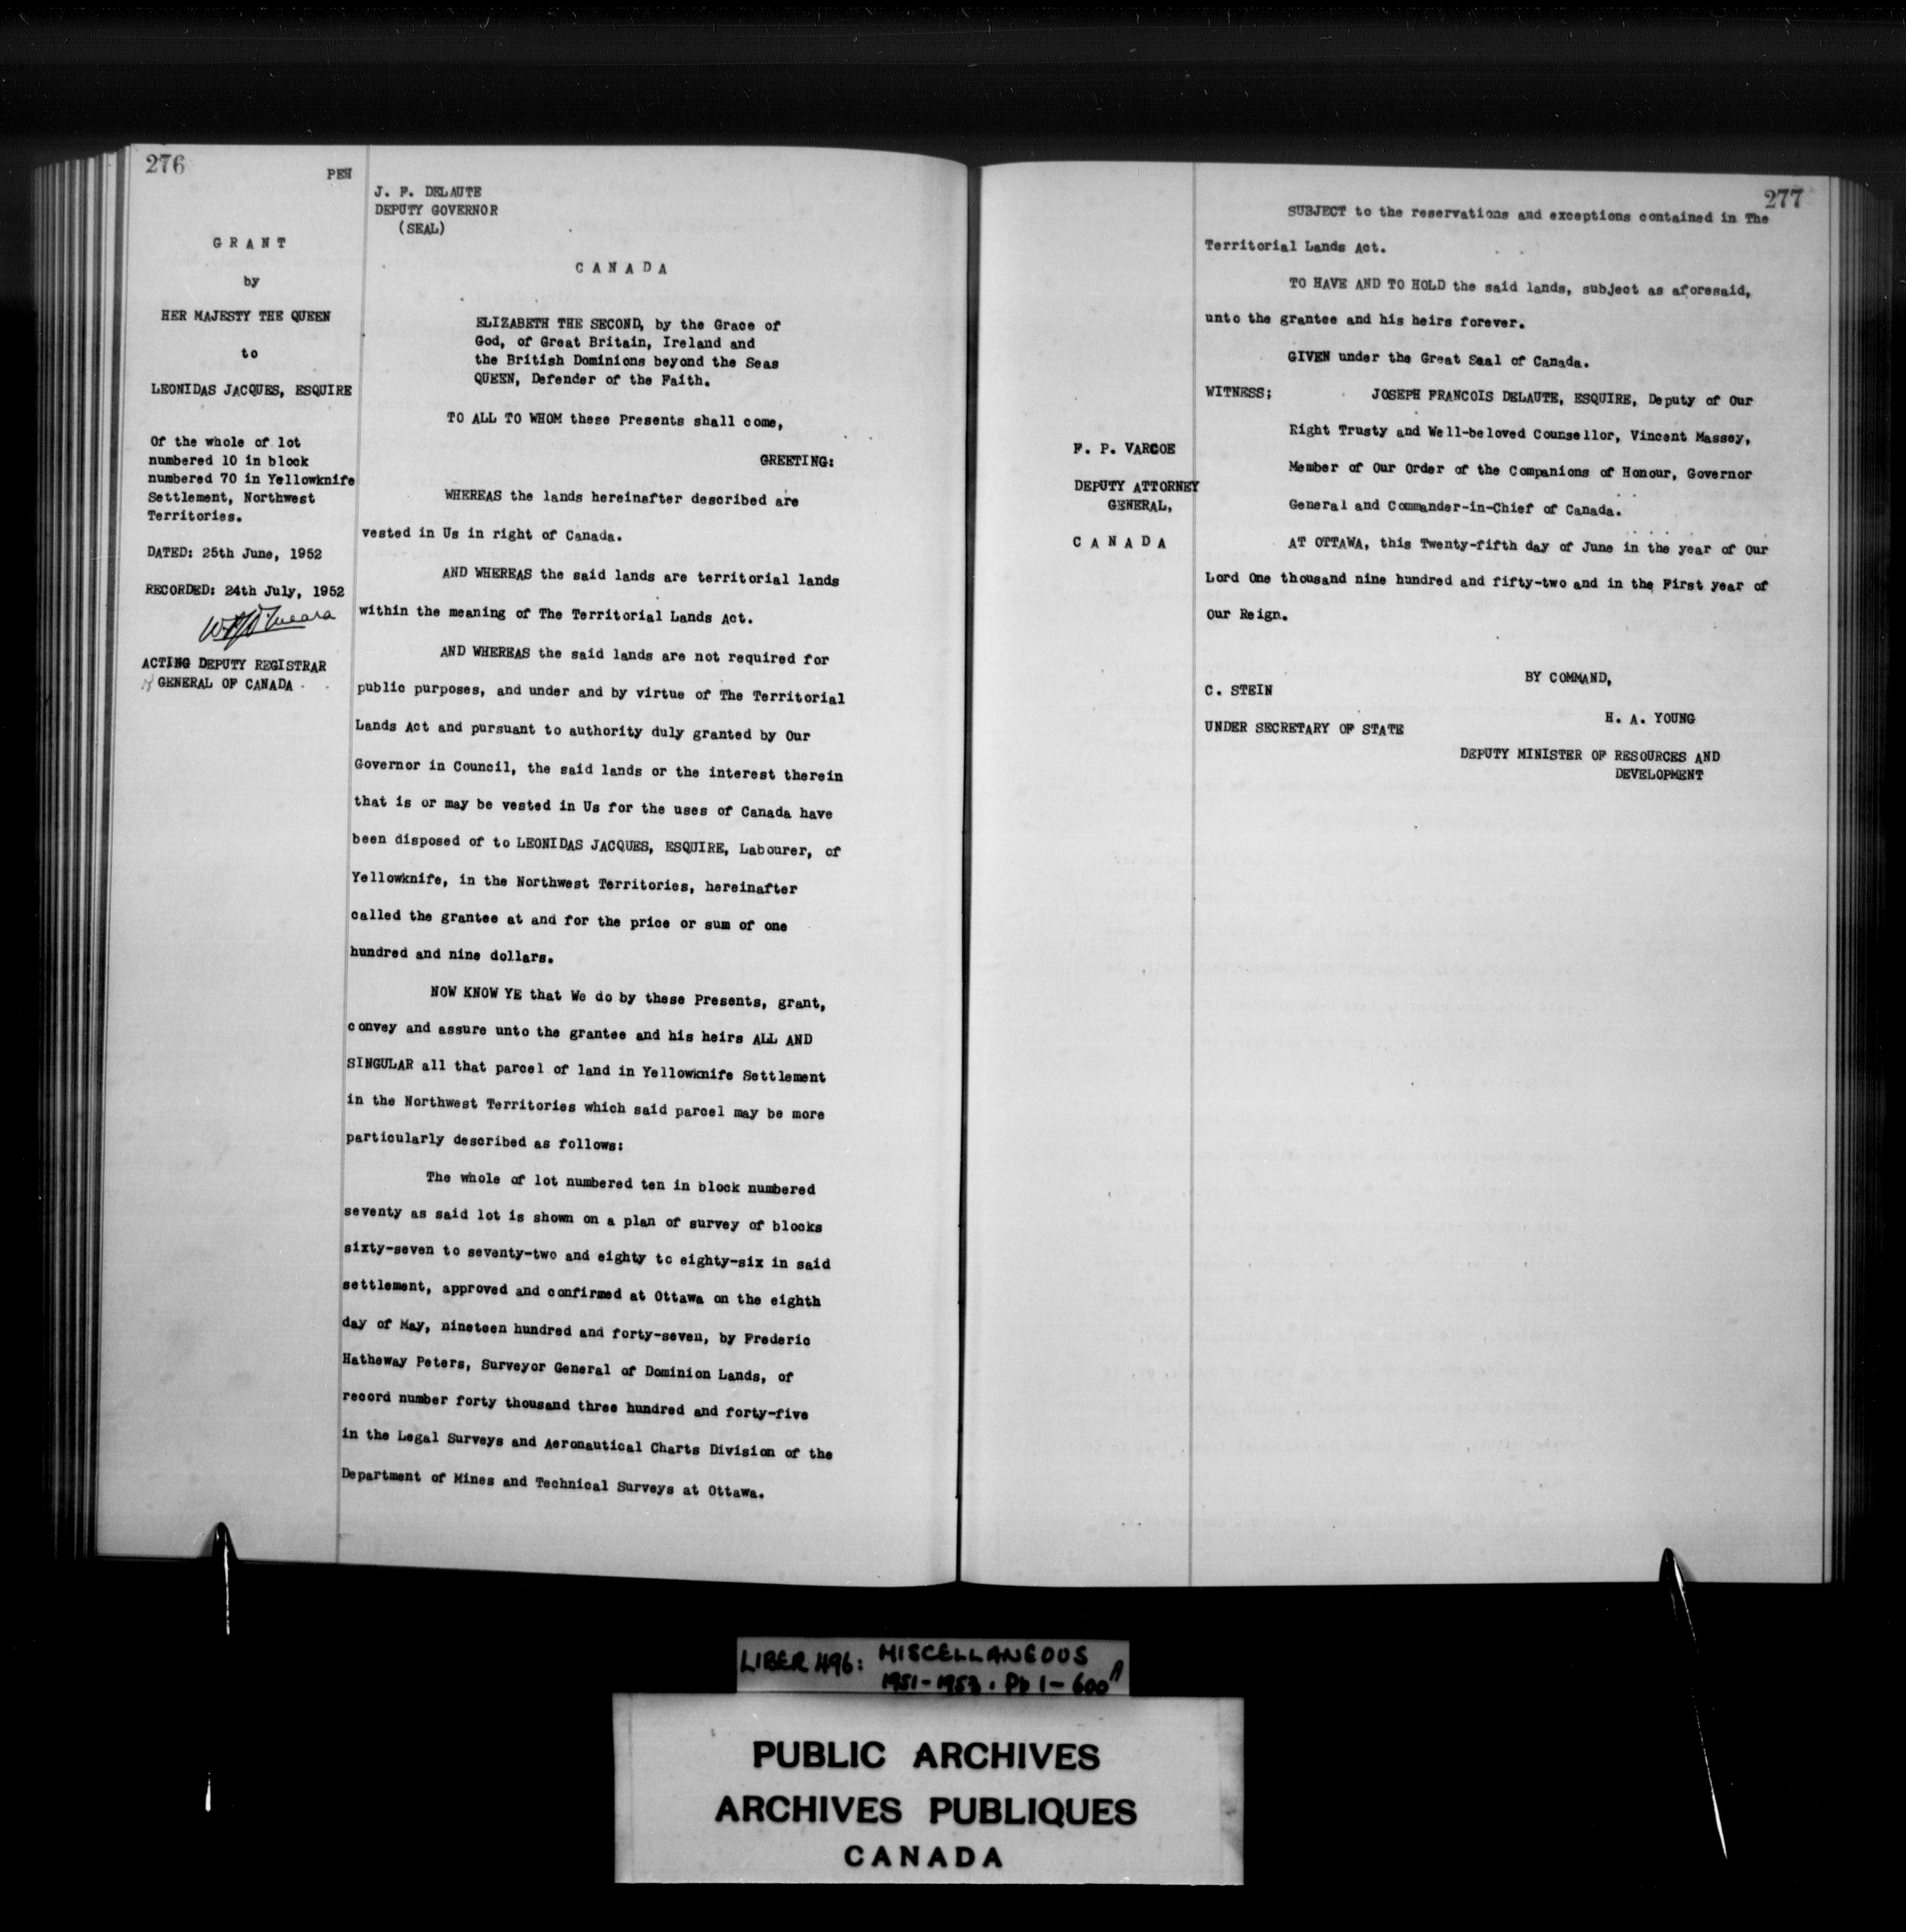 276
PEH
GRANT
by
HER MAJESTY THE QUEEN
to
LEONIDAS JACQUES, ESQUIRE
Of the whole of lot
numbered 10 in block
numbered 70 in Yellowknife
Settlement, Northwest
Territories.
DATED: 25th June, 1952
RECORDED: 24th July, 1952
ACTING DEPUTY REGISTRAR
GENERAL OF CANADA
J. F. DELAUTE
DEPUTY GOVERNOR
(SEAL)
CANADA
ELIZABETH THE SECOND, by the Grace of
God, of Great Britain, Ireland and
the British Dominions beyond the Seas
QUEEN, Defender of the Faith.
TO ALL TO WHOM these Presents shall come,
GREETING:
WHEREAS the lands hereinafter described are
vested in Us in right of Canada.
AND WHEREAS the said lands are territorial lands
within the meaning of The Territorial Lands Act.
AND WHEREAS the said lands are not required for
public purposes, and under and by virtue of The Territorial
Lands Act and pursuant to authority duly granted by Our
Governor in Council, the said lands or the interest therein
that is or may be vested in Us for the uses of Canada have
been disposed of to LEONIDAS JACQUES, ESQUIRE, Labourer, of
Yellowknife, in the Northwest Territories, hereinafter
called the grantee at and for the price or sum of one
hundred and nine dollars.
NOW KNOW YE that We do by these Presents, grant,
convey and assure unto the grantee and his heirs ALL AND
SINGULAR all that parcel of land in Yellowknife Settlement
in the Northwest Territories which said parcel may be more
particularly described as follows:
The whole of lot numbered ten in block numbered
seventy as said lot is shown on a plan of survey of blocks
sixty-seven to seventy-two and eighty to eighty-six in said
settlement, approved and confirmed at Ottawa on the eighth
day of May, nineteen hundred and forty-seven, by Frederic
Hatheway Peters, Surveyor General of Dominion Lands, of
record number forty thousand three hundred and forty-five
in the Legal Surveys and Aeronautical Charts Division of the
Department of Mines and Technical Surveys at Ottawa.
277
SUBJECT to the reservations and exceptions contained in The
Territorial Lands Act.
TO HAVE AND TO HOLD the said lands, subject as aforesaid,
unto the grantee and his heirs forever.
GIVEN under the Great Seal of Canada.
WITNESS; JOSEPH FRANCOIS DELAUTE, ESQUIRE, Deputy of Our
Right Trusty and Well-beloved Counsellor, Vincent Massey,
Member of Our Order of the Companions of Honour, Governor
General and Commander-in-Chief of Canada.
AT OTTAWA, this Twenty-fifth day of June in the year of Our
Lord One thousand nine hundred and fifty-two and in the First year of
Our Reign.
F. P. VARCOE
DEPUTY ATTORNEY
GENERAL,
CANADA
BY COMMAND,
C. STEIN
UNDER SECRETARY OF STATE
H. A. YOUNG
DEPUTY MINISTER OF RESOURCES AND
DEVELOPMENT
LIBER 496: MISCELLANEOUS
1951-1953. Pp 1-600A
PUBLIC ARCHIVES
ARCHIVES PUBLIQUES
CANADA